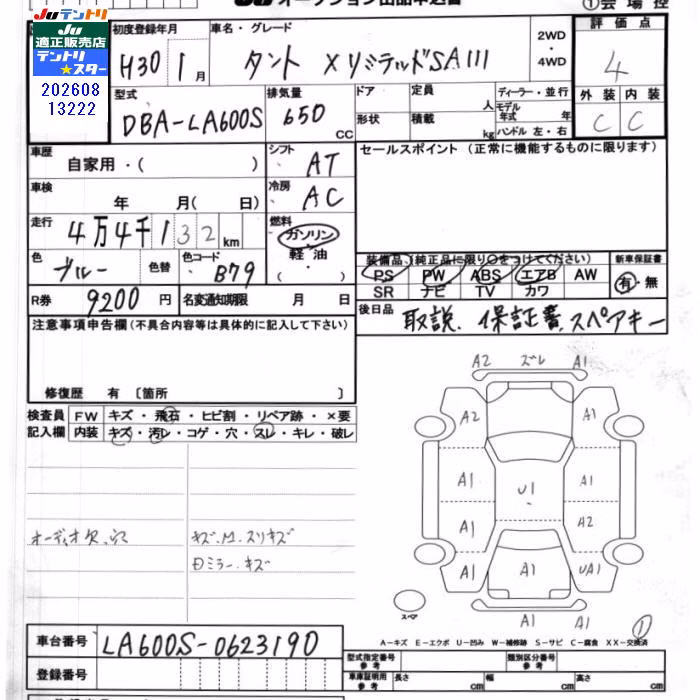 JUテントリ
JU
適正販売店
テントリ
★スター
202608
13222
①会場控
初度登録年月
H30 1月
車名・グレード
タント XリミテッドSAIII
2WD
・
4WD
評価点
4
外装 内装
C C
型式
DBA-LA600S
排気量
650 CC
ドア
形状
定員 人
積載 kg
ディーラー・並行
モデル年式 年
ハンドル 左・右
車歴
自家用・( )
シフト
AT
セールスポイント (正常に機能するものに限ります)
車検
年 月( 日)
冷房
AC
走行
4万4千132km
燃料
ガソリン
・
軽油
・
( )
色
ブルー
色替
色コード
B79
装備品 (純正品に限り○をつけてください)
PS PW ABS エアB AW
SR ナビ TV カワ
新車保証書
有・無
R券 9200円
名変通知期限 月 日
後日品 取説、保証書、スペアキー
注意事項申告欄(不具合内容等は具体的に記入して下さい)
修復歴 有 〔箇所 〕
検査員
記入欄
FW キズ・飛石・ヒビ割・リペア跡・×要
内装 キズ・汚レ・コゲ・穴・スレ・キレ・破レ
オーディオ欠、穴
キズ、M、スリキズ
Dミラー、キズ
A2 ズレ A1
A2 A1
A1 A1
U1
A1 A2
A1 A1 UA1
A1 A1
スペア
①
A-キズ E-エクボ U-凹み W-補修跡 S-サビ C-腐食 XX-交換済
車台番号 LA600S-0623190
登録番号
型式指定番号
参考
類別区分番号
参考
車庫証明用
参考
長さ cm
幅 cm
高さ cm